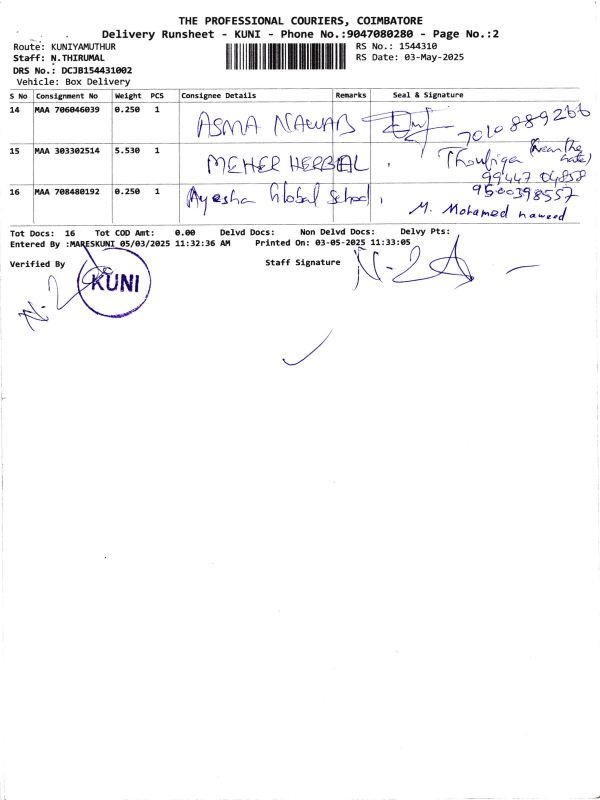 THE PROFESSIONAL COURIERS, COIMBATORE
Delivery Runsheet - KUNI - Phone No.:9047080280 - Page No.:2
Route: KUNIYAMUTHUR RS No.: 1544310
Staff: N.THIRUMAL RS Date: 03-May-2025
DRS No.: DCJB154431002
Vehicle: Box Delivery
S No Consignment No Weight PCS Consignee Details Remarks Seal & Signature
14 MAA 706046039 0.250 1 ASMA NAWAB 7010889266
15 MAA 303302514 5.530 1 MEHER HERBAL , Thoufiqa
99447 04858
16 MAA 708480192 0.250 1 Ayesha Global School , 9500398557
M. Mohamed naveed
Tot Docs: 16 Tot COD Amt: 0.00 Delvd Docs: Non Delvd Docs: Delvy Pts:
Entered By :MARESKUNI 05/03/2025 11:32:36 AM Printed On: 03-05-2025 11:33:05
Verified By Staff Signature
KUNI